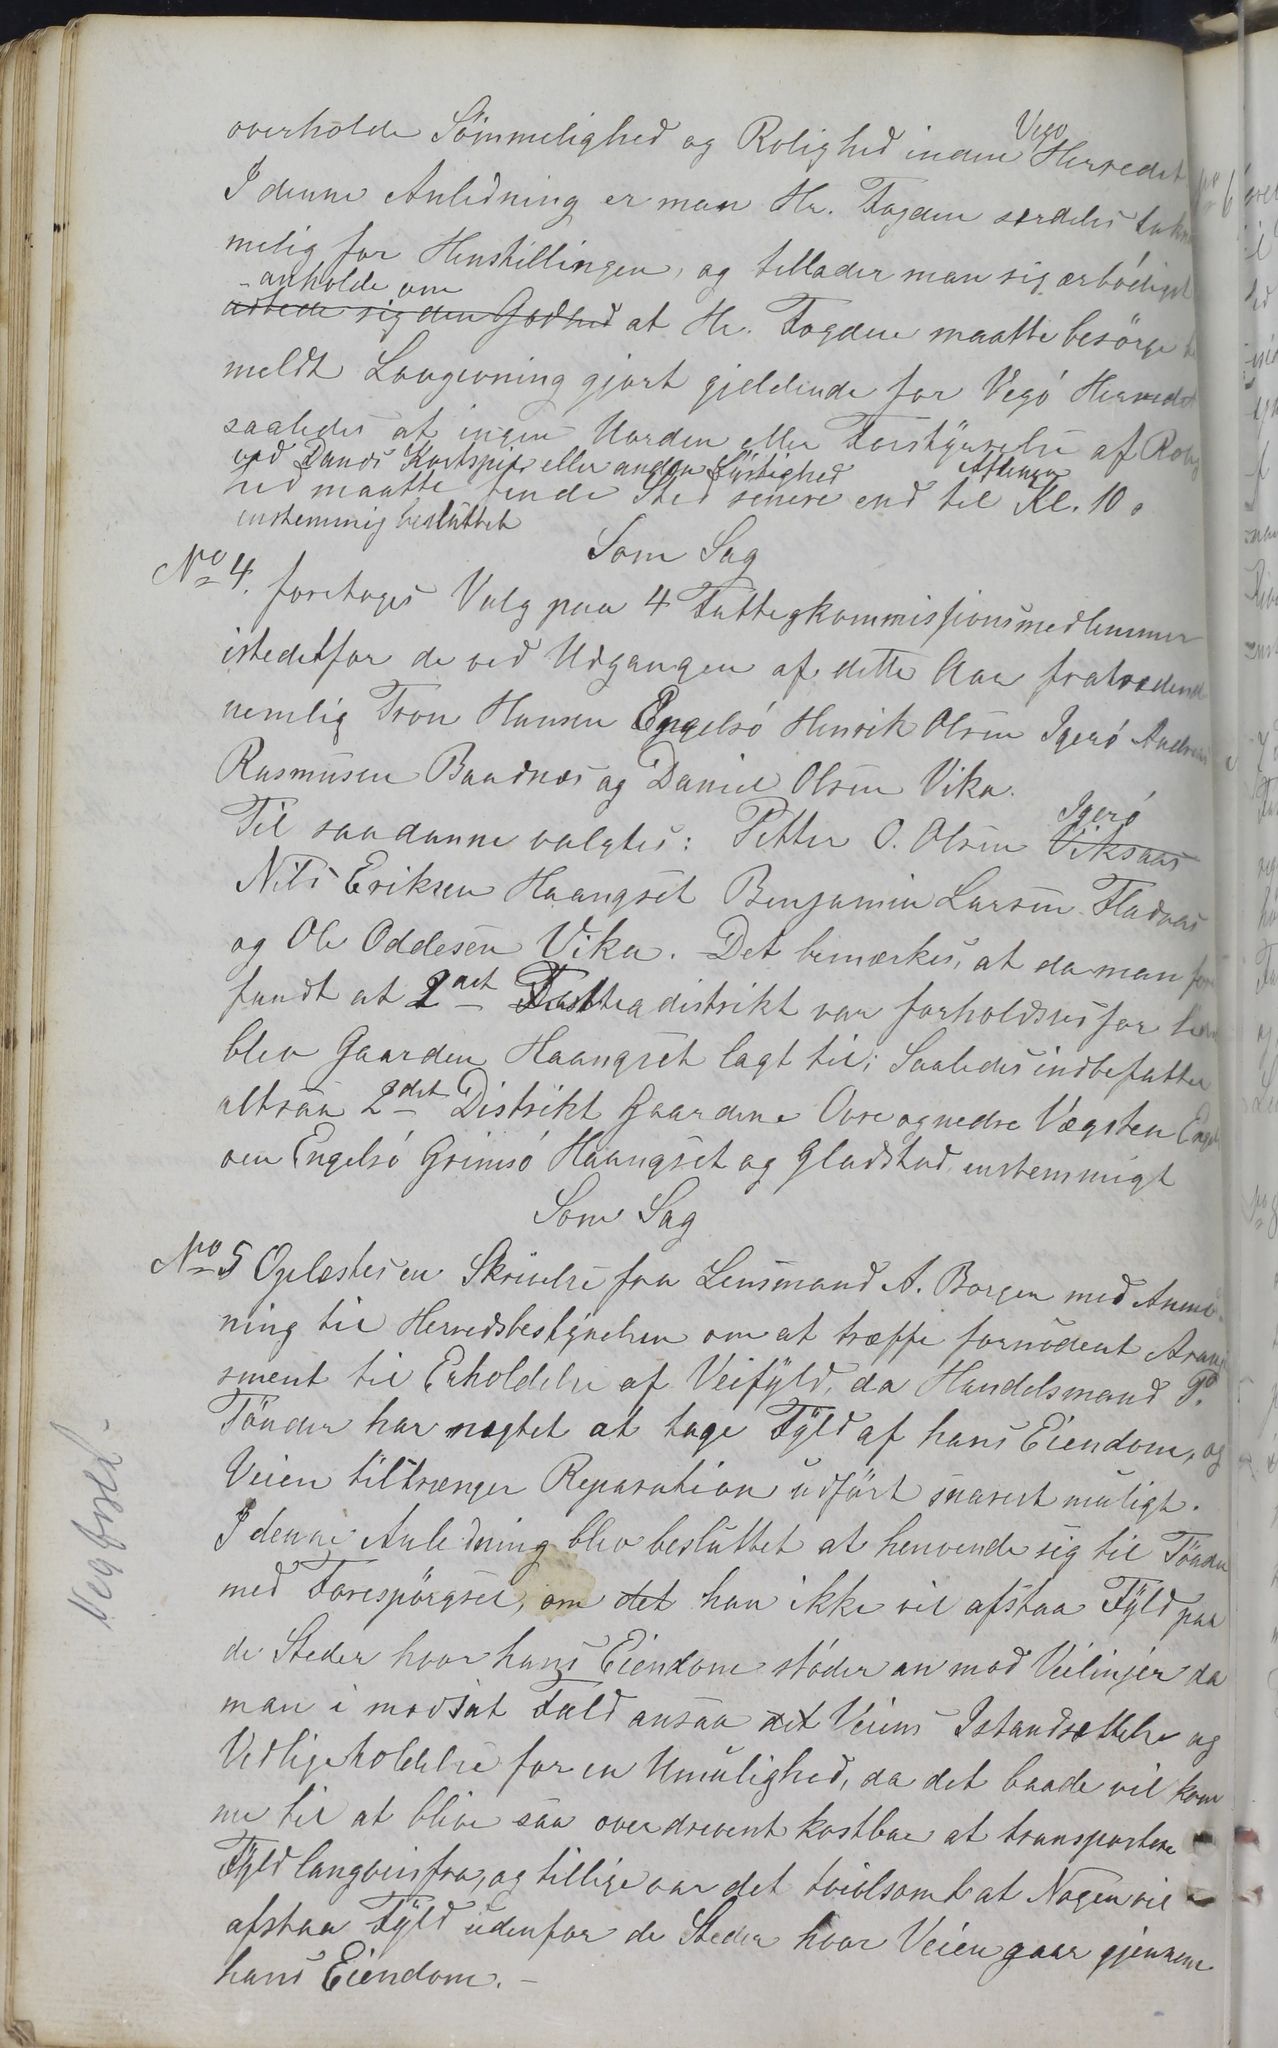 overholde Sömmelighed og Rolighed inden Vegö Herredet
I denne Anledning er man Hr. Fogden særdeles takn
melig for Henstillingen, og tillader man sig ærbödigst
anholde om
udbede sig den Godhed at Hr. Fogden maatte besörge
meldt Lovgivning gjort gjeldende for Vegö Herredet
saaledes at ingen Uorden eller Forstÿrrelse af Rolig
ved Dands Kortspil eller anden Lÿstighed Aftenen
hed maatte finde Sted senere end til Kl. 10.
enstemmig besluttet
Som Sag
No 4. foretoges Valg paa 4 Fattigkommissionsmedlemmer
istedetfor de ved Udgangen af dette Aar fratrædend
nemlig Tron Hansen Engelsö Henrik Olsen Igerö Andreas
Rasmusen Baadnæs og Daniel Olsen Vika.
Igerö
Til saadanne valgtes: Petter O. Olsen Viksaas
Nils Eriksen Haangset Benjamin Larsen Fladaas
og Ole Oddesen Vika. Det bemærkes, at da man for
fandt at 2det Fattigdistrikt var forholdsvis for
blev Gaarden Haangset lagt til; Saaledes indbefatter
altsaa 2det Distrikt Gaardene Övre og nedre Vægsten
öen Engelsö Grimsö Haangset og Gladstad enstemmigt
Som Sag
No 5 Oplæstes en Skrivelse fra Lensmand A. Borgen med Anmod-
ning til Herredsbestÿrelsen om at træffe fornödent Arang
sment til Erholdelse af Veifÿld, da Handelsmand P.
Tönder har nægtet at tage Fÿld af hans Eiendom, og
Veien tiltrænger Reparation udfört snarest muligt.
I denne Anledning blev besluttet at henvende sig til Tönder
med Forespörgsel, om det han ikke vil afstaa Fÿld paa
de Steder hvor hans Eiendom stöder an mod Veilinjen da
man i modsat Fald ansaa det Veiens Istandsættelse og
Vedligeholdelse for en Umulighed, da det baade vil kom
me til at blive saa overdrevent kostbar at transportere
Fÿld langveisfra, og tillige var det tvivlsomt at Nogen vil
afstaa Fÿld udenfor de Steder hvor Veien gaar gjennem
hans Eiendom. -
Vegbsed.